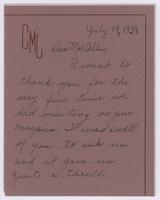 CMC
July 19, 1939
Dear Mrs. Allen:
I want to
thank you for the
very fine time we
had visiting on your
campus. It was swell
of you to ask us
and it gave us
quite a thrill.